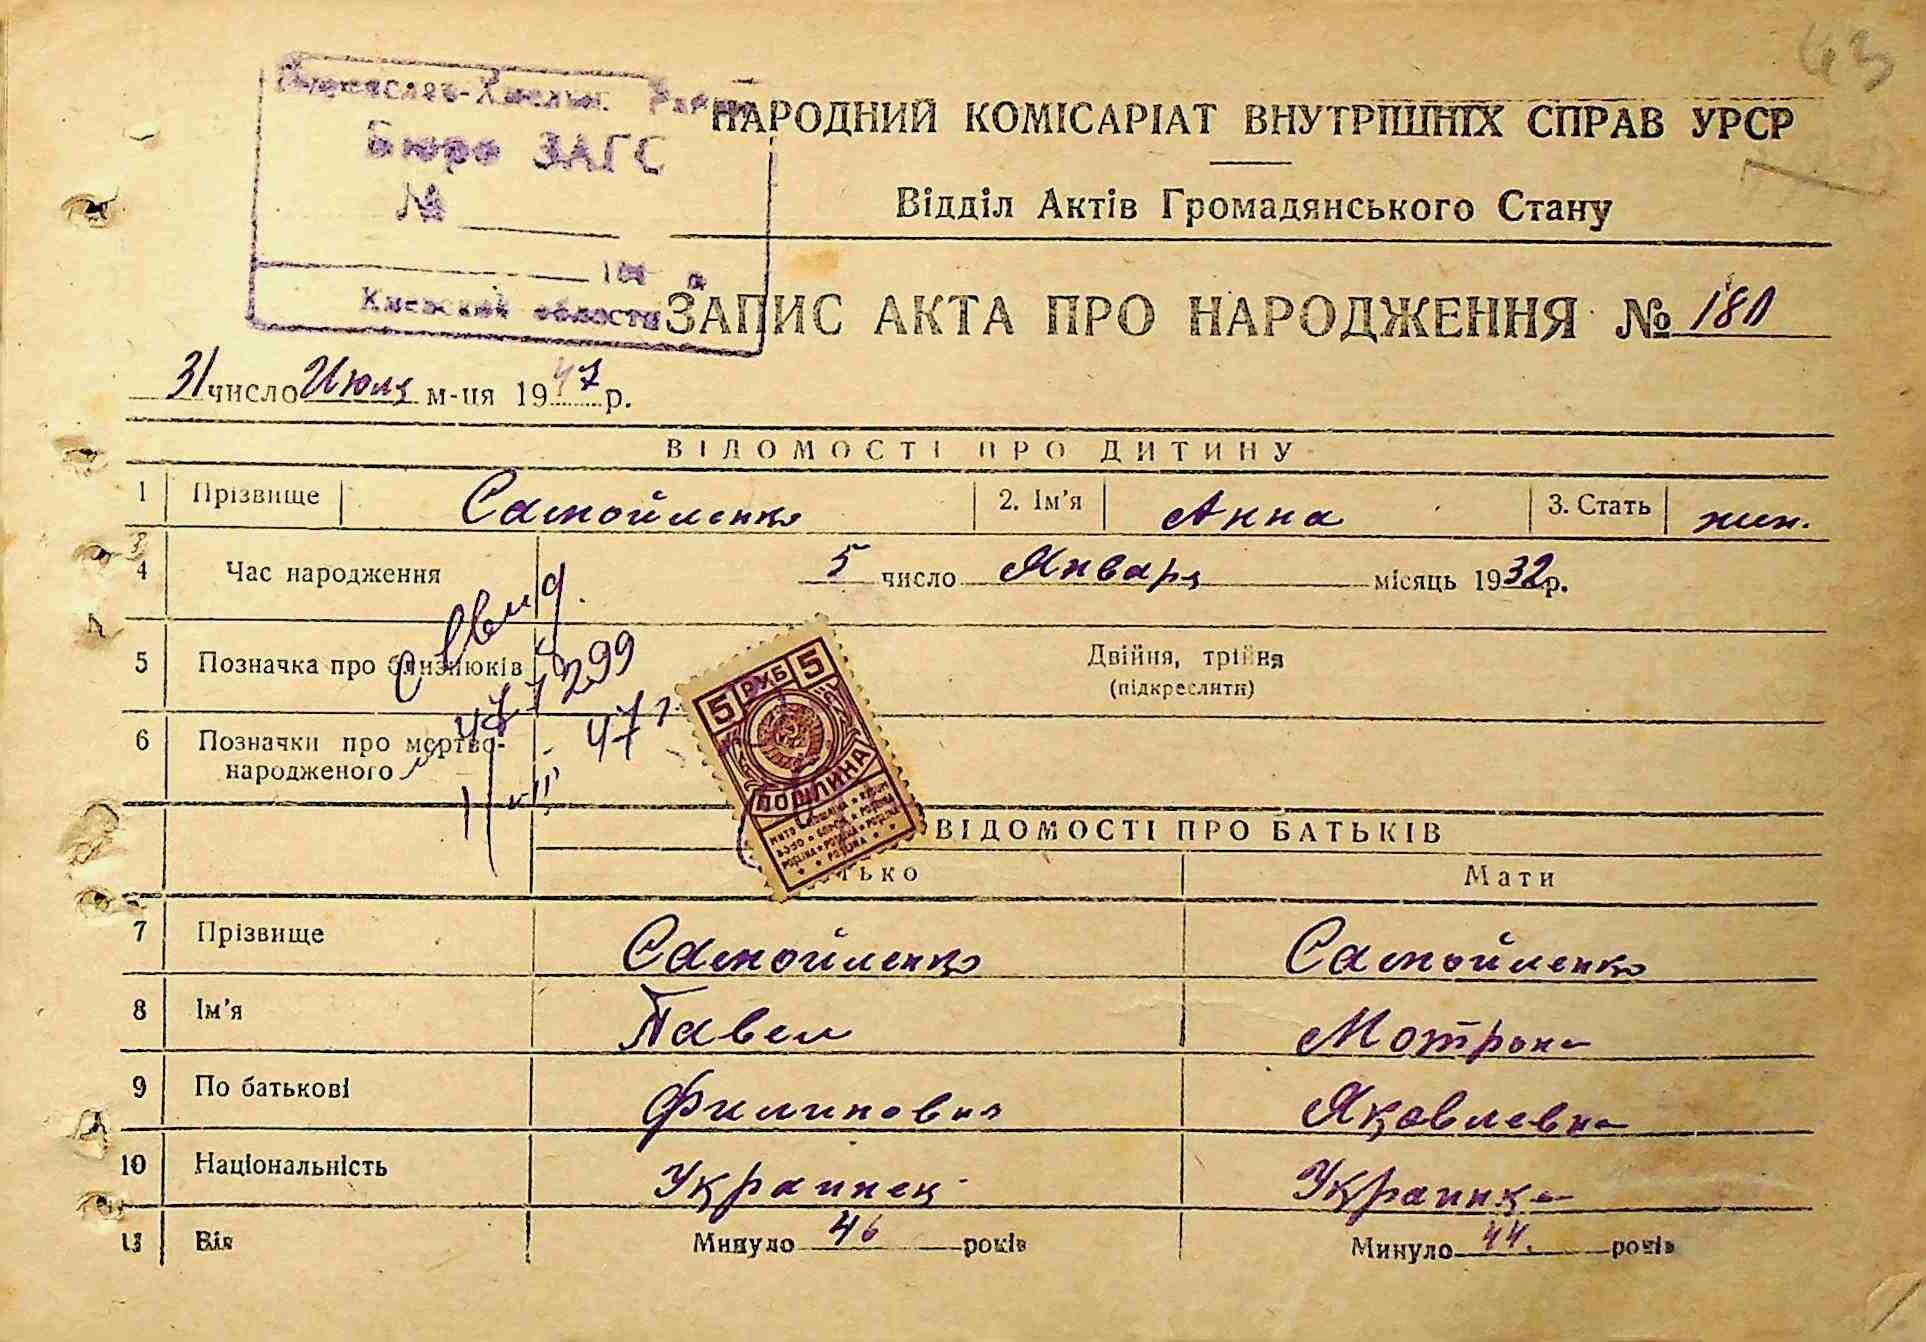 43
Переяслав-Хмельн. Район
Бюро ЗАГС
№
194 г
Киевской области
НАРОДНИЙ КОМІСАРІАТ ВНУТРІШНІХ СПРАВ УРСР
Відділ Актів Громадянського Стану
ЗАПИС АКТА ПРО НАРОДЖЕННЯ № 180
31 число Июля м-ця 1947 р.
ВІДОМОСТІ ПРО ДИТИНУ
1 Прізвище Самойленко 2. Ім'я Анна 3. Стать жин.
4 Час народження 5 число Января місяць 1932 р.
5 Позначка про близнюків Двійня, трійня
(підкреслити)
6 Позначки про мертво-
народженого
47 г
5 РУБ 5
ПОШЛИНА
ВІДОМОСТІ ПРО БАТЬКІВ
Батько Мати
7 Прізвище Самойленко Самойленко
8 Ім'я Павел Мотрона
9 По батькові Филипович Яковлевна
10 Національність Украинец Украинка
11 Вік Минуло 46 років Минуло 44. років